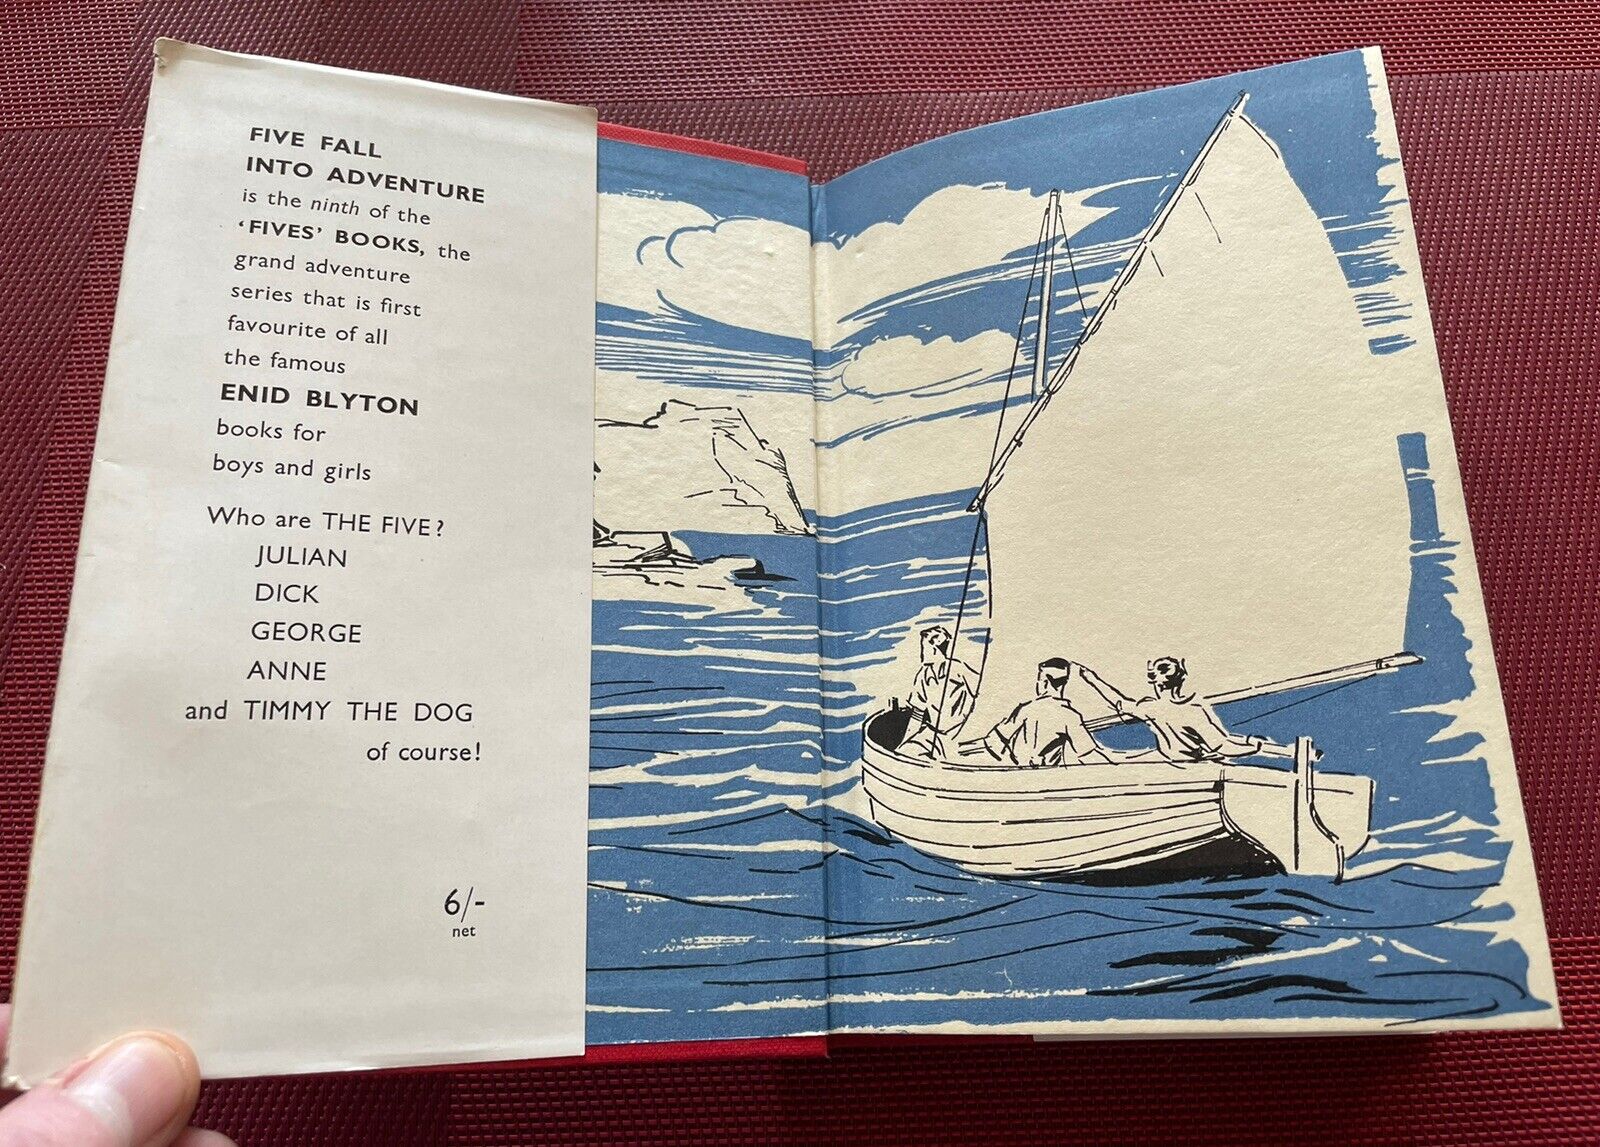 FIVE FALL
INTO ADVENTURE
is the ninth of the
‘FIVES’ BOOKS, the
grand adventure
series that is first
favourite of all
the famous
ENID BLYTON
books for
boys and girls
Who are THE FIVE?
JULIAN
DICK
GEORGE
ANNE
and TIMMY THE DOG
of course!
6/-
net